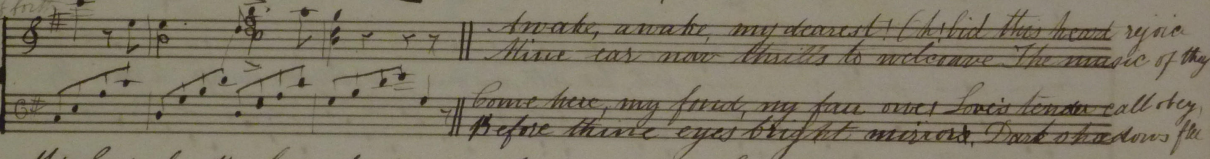 Awake, awake, my dearest! Oh! bid this heard rejoice
Mine ear now thrills to welcome The music of thy
Come here, my fond, my fair one! Love's tender call obey,
Before thine eyes bright mirrors. Dark shadows flee